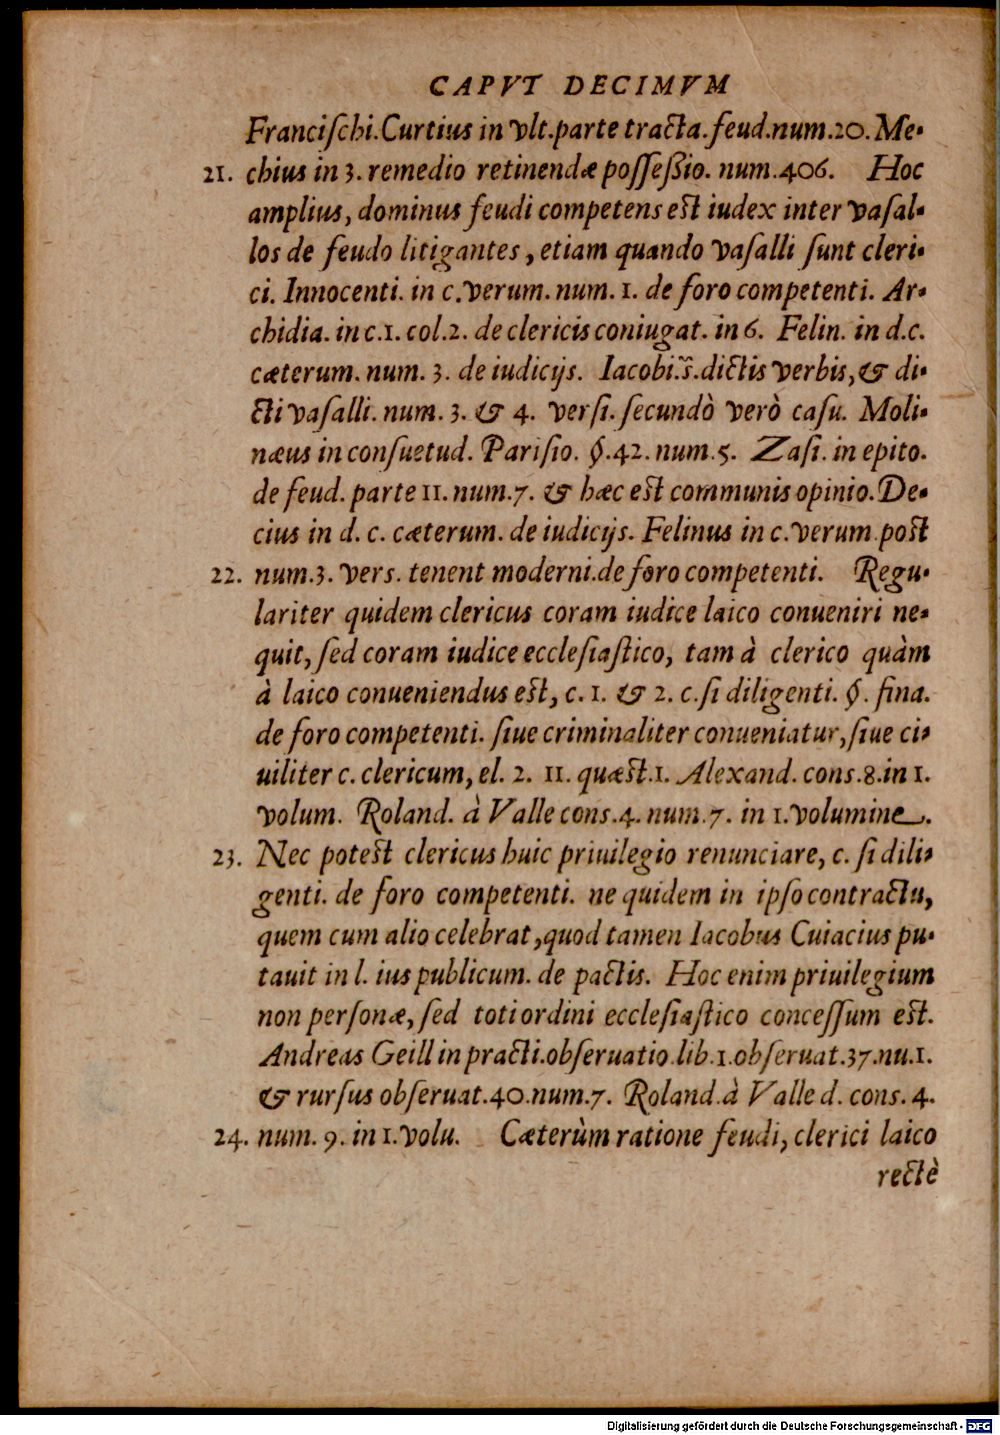 CAPVT DECIMVM
Franciſchi.Curtius in vlt.parte tracta.feud.num.20. Me-
21. chius in 3. remedio retinendæ poſſeßio. num.406. Hoc
amplius, dominus feudi competens est iudex inter vaſal-
los de feudo litigantes, etiam quando vaſalli ſunt cleri-
ci. Innocenti. in c.verum. num. 1. de foro competenti. Ar-
chidia. in c.1. col.2. de clericis coniugat. in 6. Felin. in d.c.
cæterum. num. 3. de iudicijs. Iacobi.ῖs.dictis verbis, & di-
cti vaſalli. num. 3. & 4. verſi. ſecundò verò caſu. Moli-
næus in conſuetud. Pariſio. §.42. num.5. Zaſi. in epito.
de feud. parte 11. num.7. & hæc est communis opinio. De-
cius in d. c. cæterum. de iudicijs. Felinus in c.verum.post
22. num.3. vers. tenent moderni.de foro competenti. Regu-
lariter quidem clericus coram iudice laico conueniri ne-
quit, ſed coram iudice eccleſiaſtico, tam à clerico quàm
à laico conueniendus est, c. 1. & 2. c.ſi diligenti. §. fina.
de foro competenti. ſiue criminaliter conueniatur, ſiue ci-
uiliter c. clericum, el. 2. 11. quæst.1. Alexand. cons.8.in 1.
volum. Roland. à Valle cons.4. num.7. in 1.volumine.
23. Nec potest clericus huic priuilegio renunciare, c. ſi dili-
genti. de foro competenti. ne quidem in ipſo contractu,
quem cum alio celebrat, quod tamen Iacobus Cuiacius pu-
tauit in l. ius publicum. de pactis. Hoc enim priuilegium
non perſonæ, ſed toti ordini eccleſiaſtico conceſſum est.
Andreas Geill in practi.obſeruatio.lib.1.obſeruat.37.nu.1.
& rurſus obſeruat.40.num.7. Roland.à Valle d. cons. 4.
24. num. 9. in 1.volu. Cæterùm ratione feudi, clerici laico
rectè
Digitalisierung gefördert durch die Deutsche Forschungsgemeinschaft - DFG